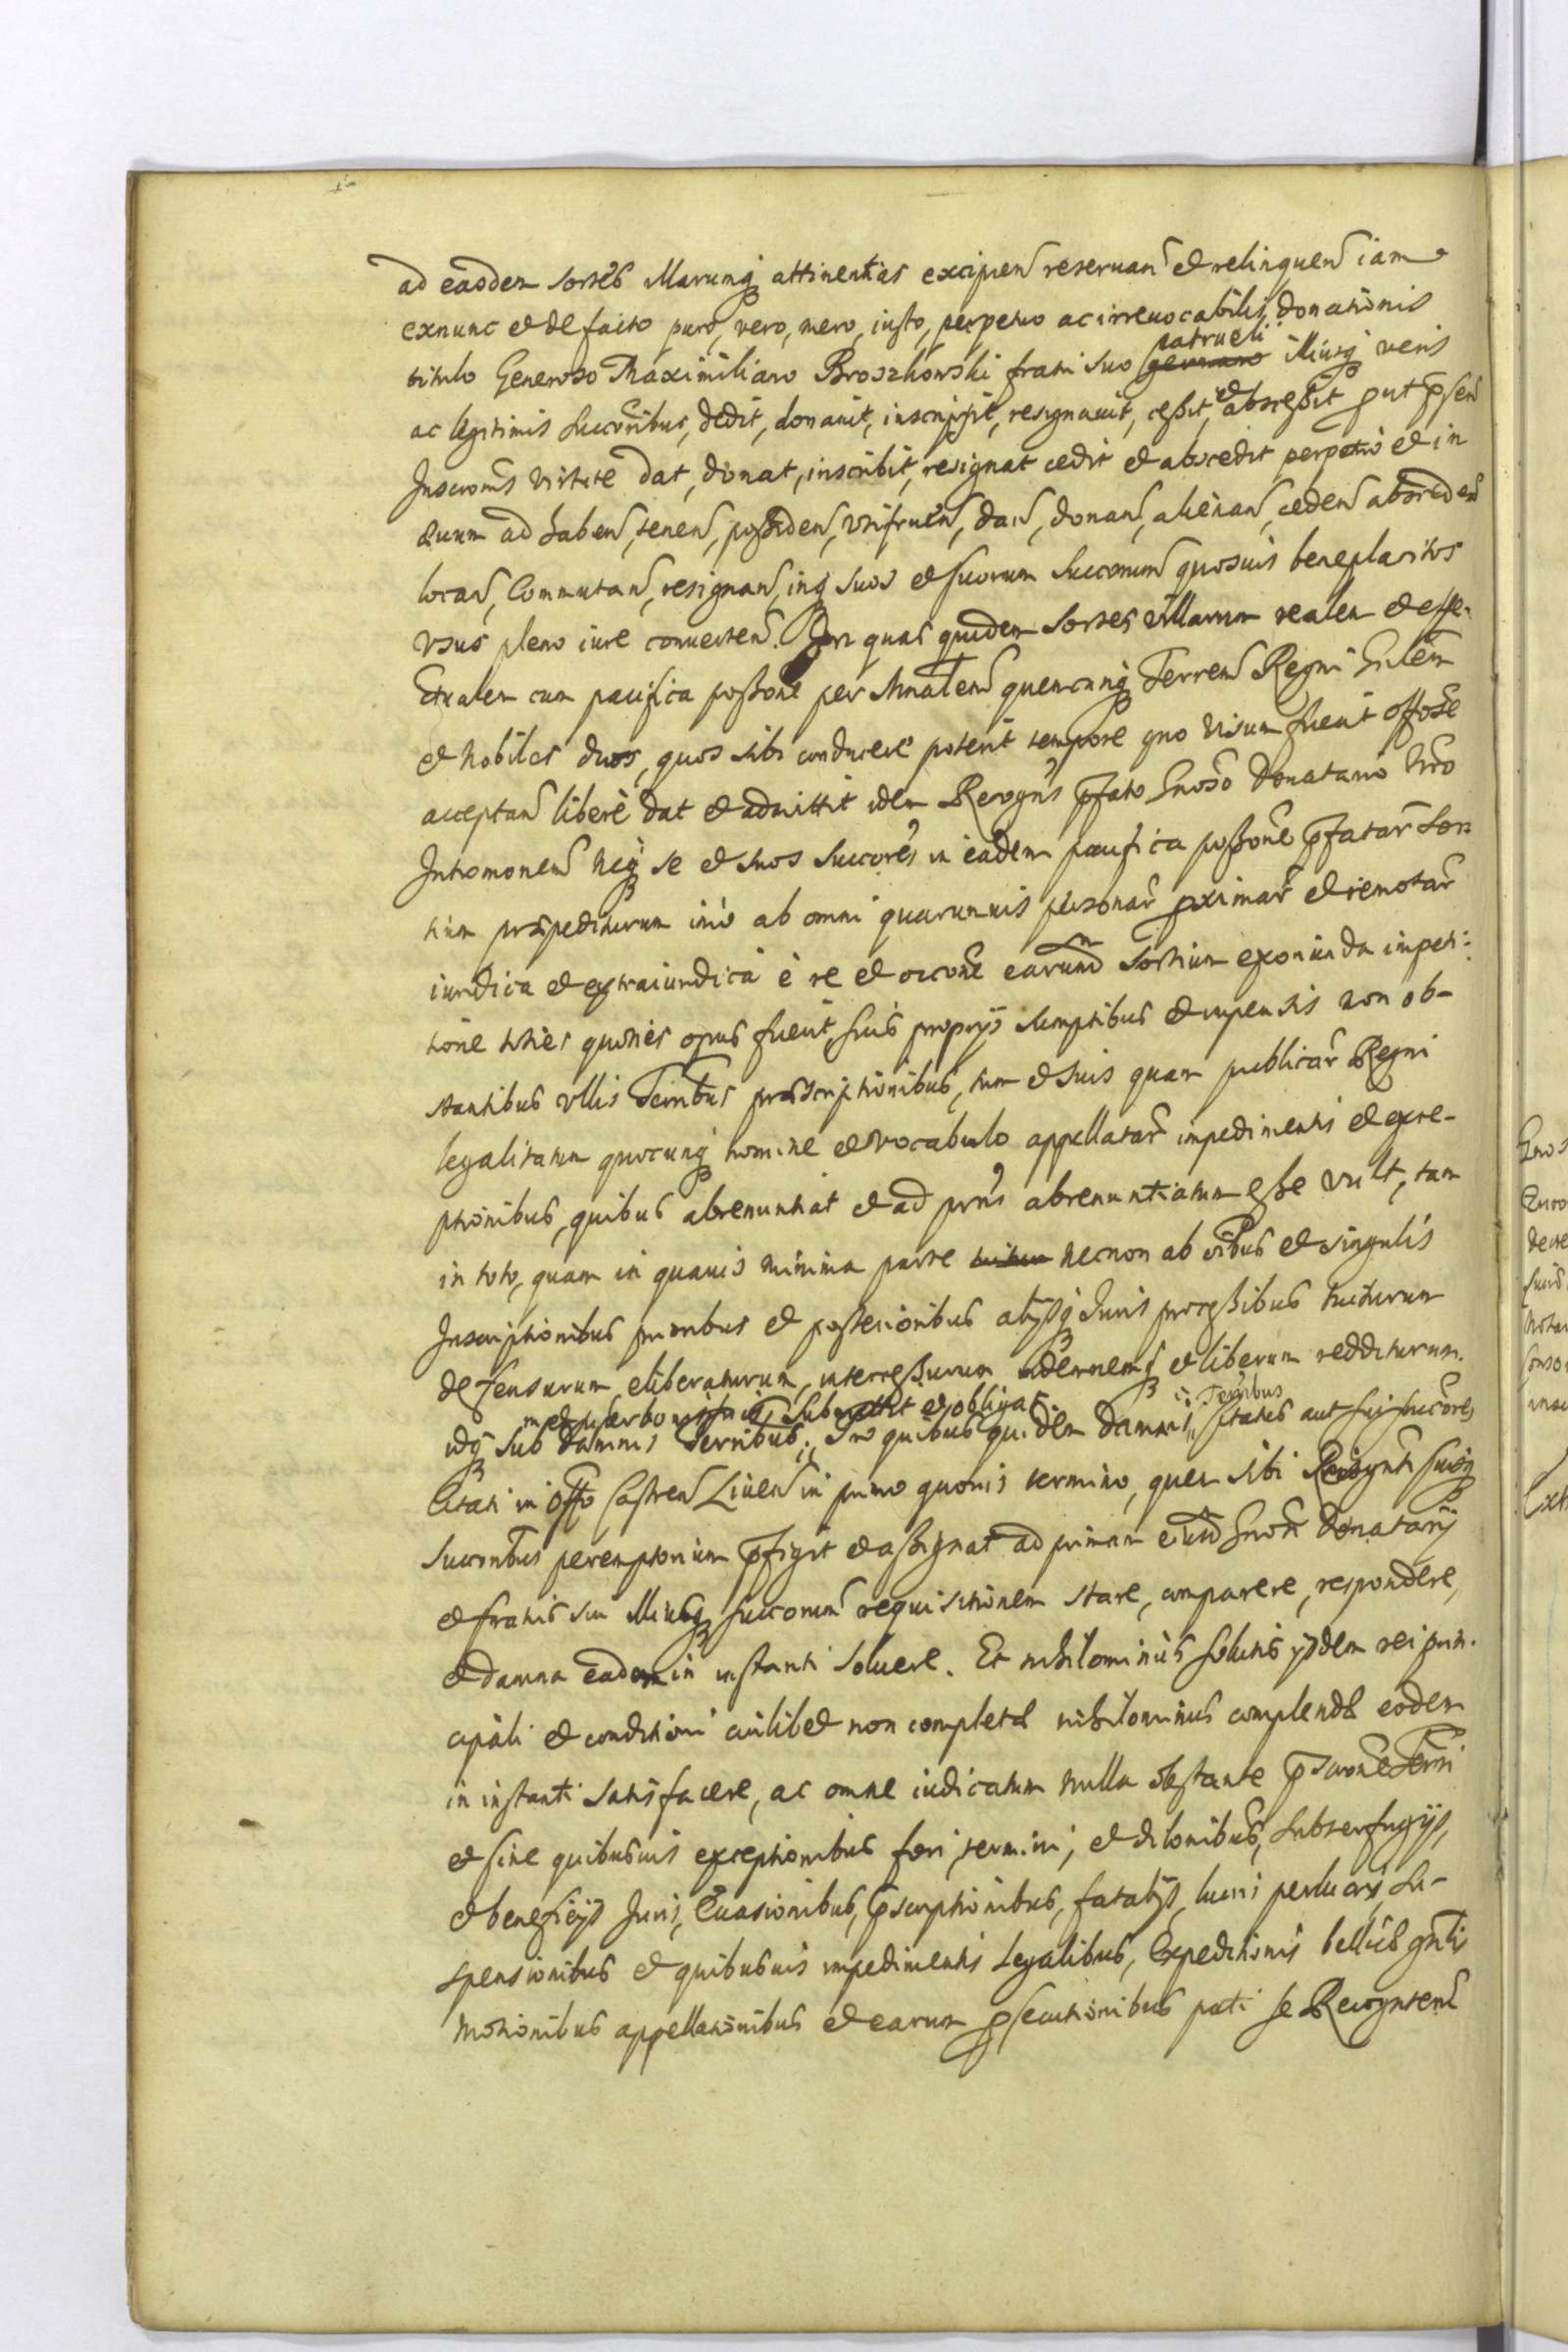 ad easdem sortes illarumq attinentias excipien reseruan et relinquen iam
exnunc et de facto puro, vero, mero, iusto, perpetuo ac irreuocabilis donationis
titulo Generoso Maximiliano Broszkowski fratri suo germano patrueli illiusq veris
ac legitimis succoribus, dedit, donauit, inscripsit, resignauit, cessit, et abscessit put psen
Inscronis virtute dat, donat, inscribit, resignat cedit et abscedit perpetuo et in
æuum ad haben, tenen, possiden, vtifruen, dan, donan, alienan, ceden absceden
locan, Commutan, resignan, inq suos et suorum succorum quosuis beneplacitos
vsus pleno iure conuerten. In quas quidem sortes villarum realem et effe-
ctualem cum pacifica possone per Mnalem quemcunq Terren Regni Gnlem
et Nobiles duos, quos sibi conducere poterit tempore quo visum fuerit offose
acceptan libere dat et admittit idem Recogns pfato Gnoso Donatario vero
Intromonem neq se et suos succores in eadem pacifica possone pfatar sor-
tium præpediturum imo ab omni quarumuis personar pximar et remotar
iuridica et extraiuridica è re et occone earund sortium exoriunda impeti-
tione toties quoties opus fuerit suis proprijs sumptibus et impensis non ob-
stantibus vllis Terribus præscriptionibus, tum et suis quam publicar Regni
legalitatum quocunq nomine et vocabulo appellatar impedimentis et exce-
ptionibus, quibus abrenuntiat et ad prns abrenuntiatum esse vult, tam
in toto, quam in quauis minima parte necnon ab oibus et singulis
Inscriptionibus prioribus et posterioribus alijsq Juris processibus tuiturum
defensurum eliberaturum, intercessurum indemnemq et liberum redditurum.
submittit et obligat Terribus
idq sub damnis Terribus. Pro quibus quidem damnis citatus aut sui succores
Citati in Offo Castren Liuen in primo quouis termino, quem sibi Recognti suisq
succoribus peremptorium pfigit et assignat ad primam eiusd Gnosi Donatarij
et fratris sui illiusq succorum requisitionem stare, comparere, respondere,
et damna eadem in instanti soluere. Et nihilominus solutis ijsdem rei prin-
cipali et conditioni cuilibet non completæ nihilominus complendæ eodem
in instanti satisfacere, ac omne iudicatum nulla obstante pscrone Terri
et sine quibusuis exceptionibus fori, termini, et dilonibus, subterfugijs,
et beneficijs Juris, Euasionibus, pscriptionibus, fatalijs, lucri perlucrij su-
spensionibus et quibusuis impedimentis legalibus, Expeditionis bellicæ gnlis
motionibus appellationibus et earum psecutionibus pati se Recognten